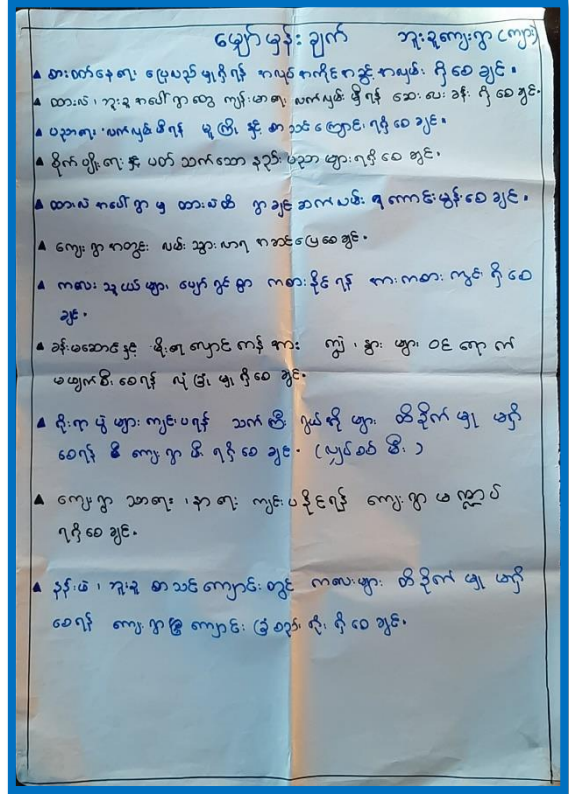 မျှော်မှန်းချက် ဘူးခူကျေးရွာ (ကျား)
▲ စားဝတ်နေရေး ပြေလည်မှုရှိရန် အလုပ်အကိုင်အခွင့်အလမ်း ရှိစေချင်။
▲ ထားလဲ၊ ဘူးခူအပေါ်ရွာတွေ ကျန်းမာရေး လက်လှမ်းမှီရန် ဆေးပေးခန်း ရှိစေချင်။
▲ ပညာရေး လက်လှမ်းမှီရန် မူကြို နှင့် စာသင်ကြောင်း ရရှိစေချင်။
▲ စိုက်ပျိုးရေးနှင့် ပတ်သက်သော နည်းပညာများရရှိစေချင်။
▲ ထားလဲအပေါ်ရွာမှ ထားလဲထိ ရွာချင်းဆက်လမ်း ရကောင်းမွန်စေချင်။
▲ ကျေးရွာအတွင်း လမ်းသွားလာရ အဆင်ပြေစေချင်။
▲ ကလေးသူငယ်များ ပျော်ရွှင်စွာ ကစားနိုင်ရန် အားကစားကွင်း ရှိစေ
ချင်။
▲ ခန်းမဆောင်နှင့် မိုးရေလှောင်ကန်အား ကျွဲ၊ နွား များ ဝင်ရောက်
မဖျက်စီးစေရန် လုံခြုံမှုရှိစေချင်။
▲ ရိုးရာပွဲများကျင်းပရန် သက်ကြီးရွယ်အိုများ ထိခိုက်မှု မရှိ
စေရန် မီ ကျေးရွာမီး ရရှိစေချင်။ (လျှပ်စစ်မီး)
▲ ကျေးရွာ သာရေး၊ နာရေး ကျင်းပနိုင်ရန် ကျေးရွာမဏ္ဍပ်
ရရှိစေချင်။
▲ နန်းဖဲ၊ ဘူးခူစာသင်ကျောင်းတွင် ကလေးများ ထိခိုက်မှု မရှိ
စေရန် ကျေးရွာ ကျောင်း ခြံစည်းရိုး ရှိစေချင်။